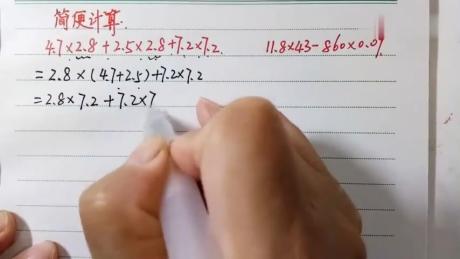 简便计算.
4.7×2.8+2.5×2.8+7.2×7.2.
11.8×43-860×0.0
=2.8×(4.7+2.5)+7.2×7.2
=2.8×7.2+7.2×7